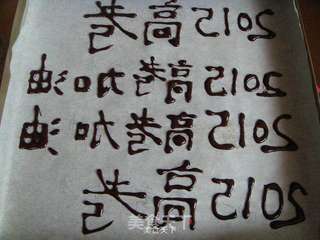 2015高考
2015高考加油
2015高考加油
2015高考
美食天下